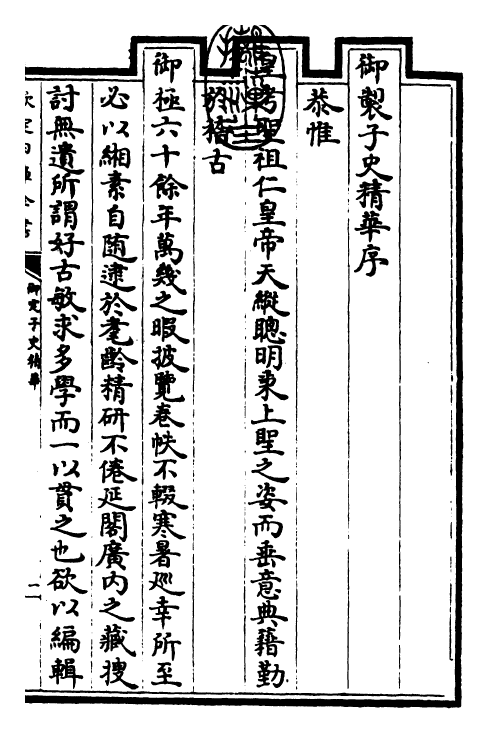 御製子史精華序
恭惟
皇考聖祖仁皇帝天縱聰明秉上聖之姿而垂意典籍勤
於稽古
御極六十餘年萬幾之暇披覽卷帙不輟寒暑巡幸所至
必以緗素自随逮於耄齡精研不倦延閣廣内之藏搜
討無遺所謂好古敏求多學而一以貫之也欲以編輯
欽定四庫全書
御定子史精華
二